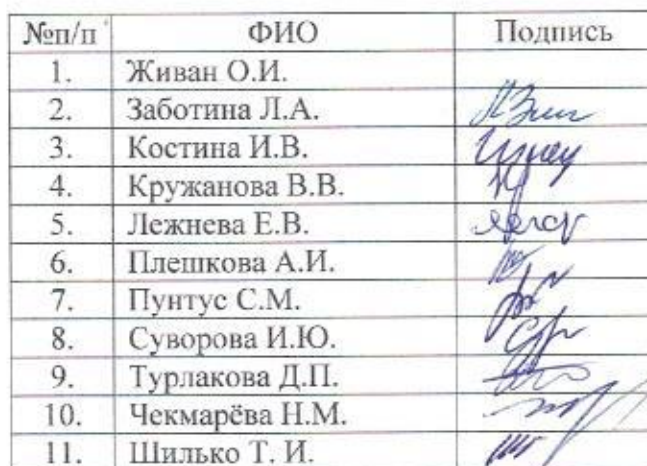 №п/п ФИО Подпись
1. Живан О.И.
2. Заботина Л.А.
3. Костина И.В.
4. Кружанова В.В.
5. Лежнева Е.В.
6. Плешкова А.И.
7. Пунтус С.М.
8. Суворова И.Ю.
9. Турлакова Д.П.
10. Чекмарёва Н.М.
11. Шилько Т. И.